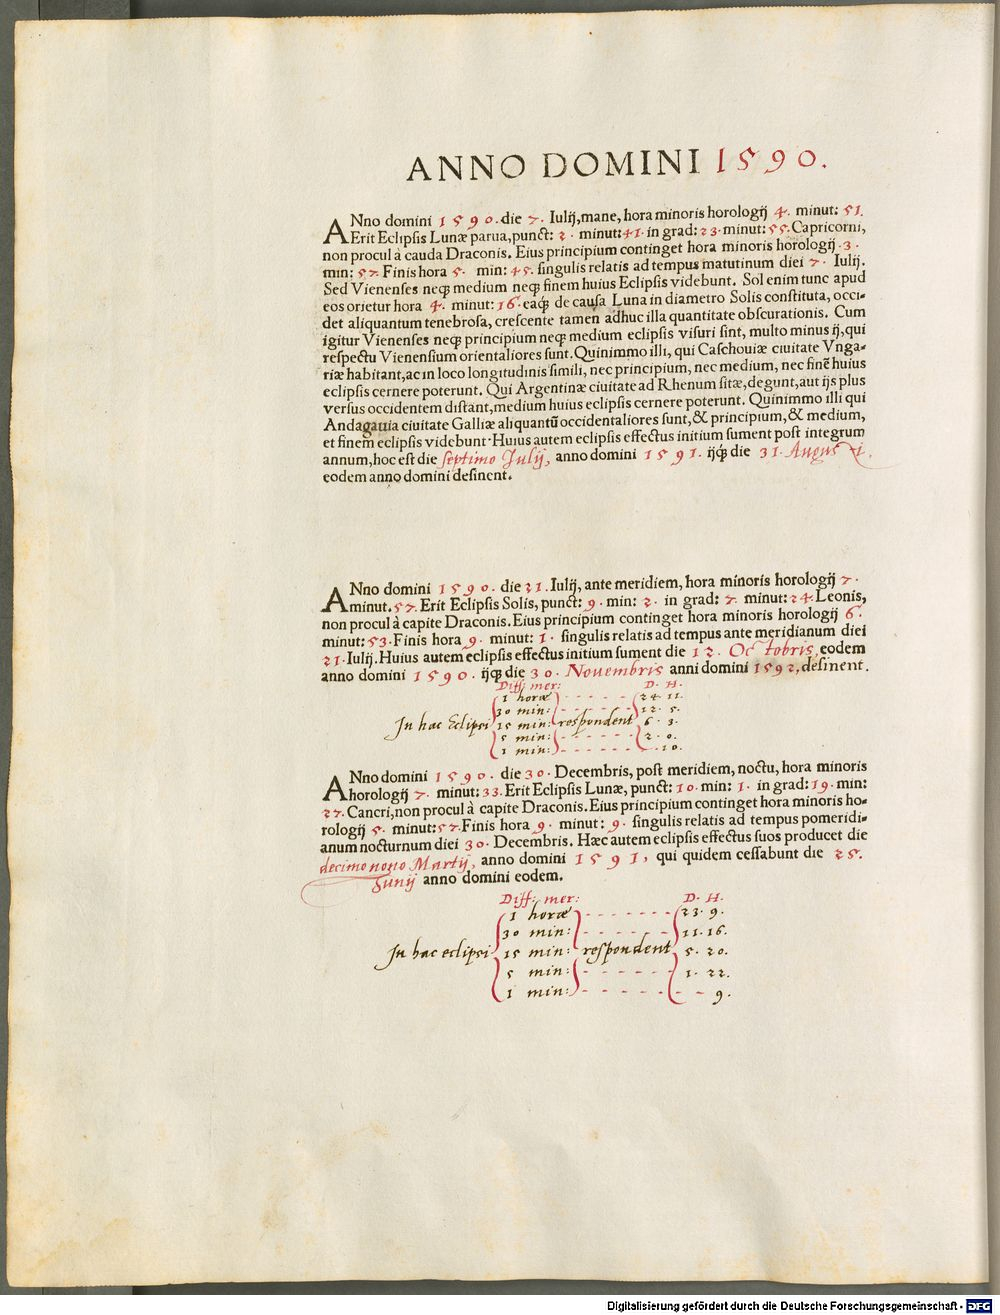 ANNO DOMINI 1590.
ANno domini 1590. die 7. Iulij, mane, hora minoris horologij 4. minut: 51.
Erit Eclipsis Lunæ parua, punct: 2. minut: 41. in grad: 23. minut: 55. Capricorni,
non procul à cauda Draconis. Eius principium continget hora minoris horologij 3.
min: 57. Finis hora 5. min: 45. singulis relatis ad tempus matutinum diei 7. Iulij.
Sed Vienenses neqȝ medium neqȝ finem huius Eclipsis videbunt. Sol enim tunc apud
eos orietur hora 4. minut: 16. eaqȝ de causa Luna in diametro Solis constituta, occi-
det aliquantum tenebrosa, crescente tamen adhuc illa quantitate obscurationis. Cum
igitur Vienenses neqȝ principium neqȝ medium eclipsis visuri sint, multo minus ij, qui
respectu Vienensium orientaliores sunt. Quinimmo illi, qui Caschouiæ ciuitate Vnga-
riæ habitant, ac in loco longitudinis simili, nec principium, nec medium, nec finē huius
eclipsis cernere poterunt. Qui Argentinæ ciuitate ad Rhenum sitæ, degunt, aut ijs plus
versus occidentem distant, medium huius eclipsis cernere poterunt. Quinimmo illi qui
Andagauia ciuitate Galliæ aliquantū occidentaliores sunt, & principium, & medium,
et finem eclipsis videbunt. Huius autem eclipsis effectus initium sument post integrum
annum, hoc est die septimo Iulij, anno domini 1591. ijqȝ die 31. Augusti,
eodem anno domini desinent.
ANno domini 1590. die 21. Iulij, ante meridiem, hora minoris horologij 7.
minut. 57. Erit Eclipsis Solis, punct: 9. min: 2. in grad: 7. minut: 24. Leonis,
non procul à capite Draconis. Eius principium continget hora minoris horologij 6.
minut: 53. Finis hora 9. minut: 1. singulis relatis ad tempus ante meridianum diei
21. Iulij. Huius autem eclipsis effectus initium sument die 12. Octobris, eodem
anno domini 1590. ijqȝ die 30. Nouembris anni domini 1592, desinent.
Diff: mer: D. H.
1 horæ 24. 11.
30 min: 12. 5.
In hac Eclipsi 15 min: respondent 6. 3.
5 min: 2. 0.
1 min: 10.
ANno domini 1590. die 30. Decembris, post meridiem, noctu, hora minoris
horologij 7. minut: 33. Erit Eclipsis Lunæ, punct: 10. min: 1. in grad: 19. min:
27. Cancri, non procul à capite Draconis. Eius principium continget hora minoris ho-
rologij 5. minut: 57. Finis hora 9. minut: 9. singulis relatis ad tempus pomeridi-
anum nocturnum diei 30. Decembris. Hæc autem eclipsis effectus suos producet die
decimo nono Martij, anno domini 1591, qui quidem cessabunt die 25.
Iunij anno domini eodem.
Diff: mer: D. H.
1 horæ 23. 9.
30 min: 11. 16.
In hac eclipsi 15 min: respondent 5. 20.
5 min: 1. 22.
1 min: 9.
Digitalisierung gefördert durch die Deutsche Forschungsgemeinschaft - DFG